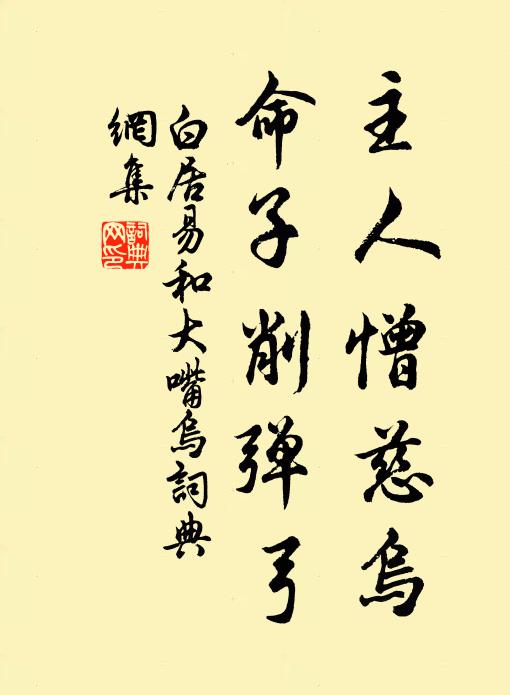 主人憎慈烏
命子削弹弓
白居易和大嘴烏詞典
網集
詞典
网印